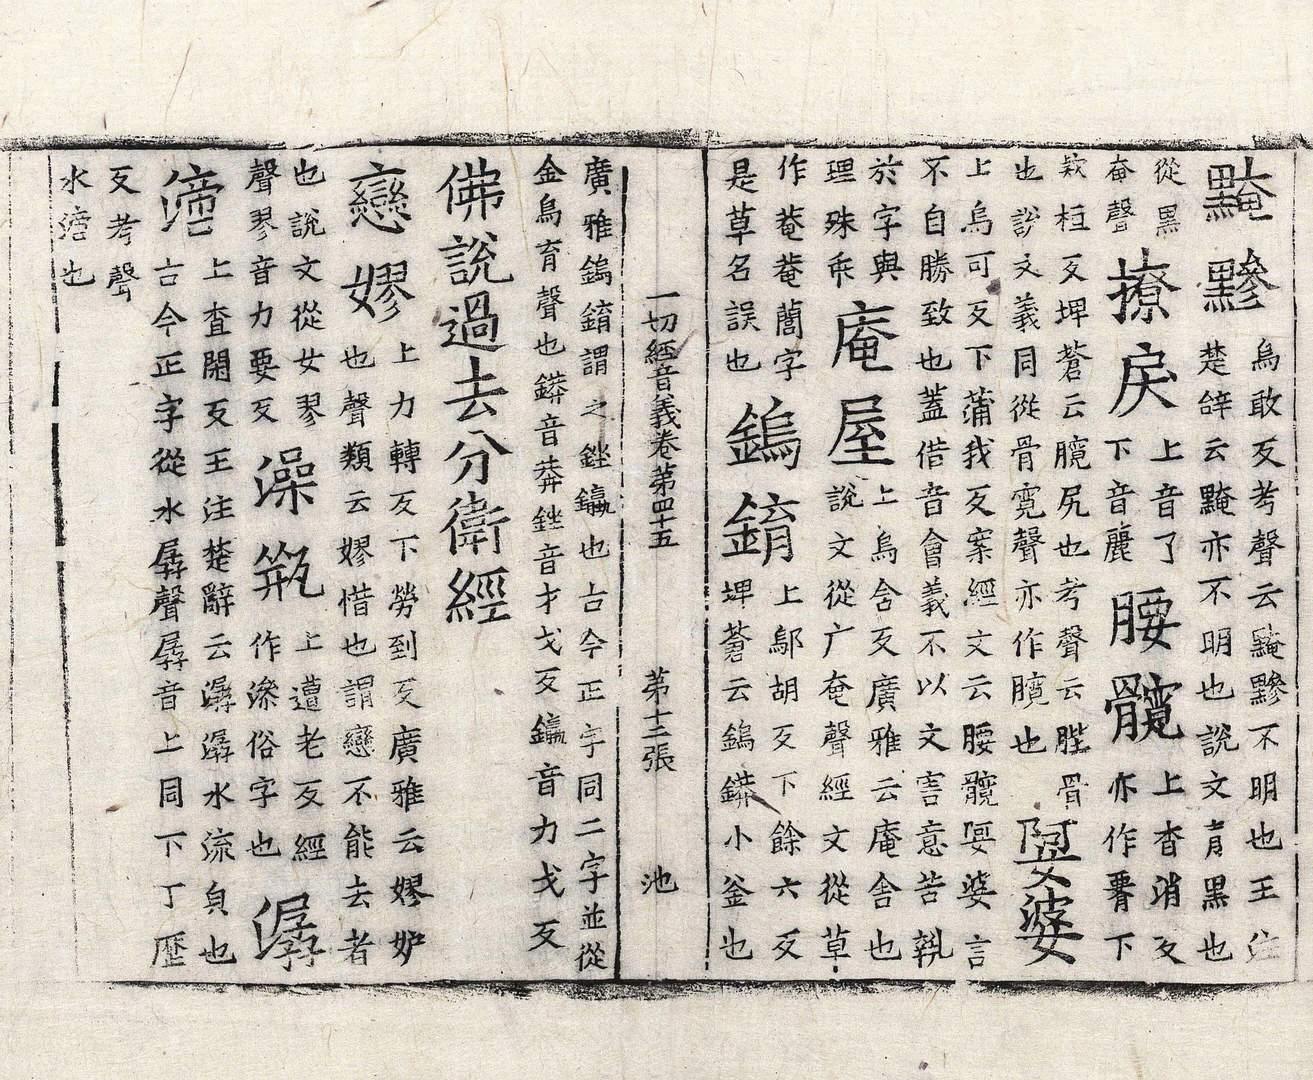 黤黲
烏敢反考聲云黤黲不明也王注
楚辭云黤亦不明也說文青黑也
從黑
奄聲
撩戾
上音了
下音麗
腰髖
上杳消反
亦作𦝫下
欵桓反埤蒼云臗尻也考聲云䏶骨
也說文義同從骨寬聲亦作臗也
娿婆
上烏可反下蒲我反案經文云腰髖娿婆言
不自勝致也蓋借音會義不以文害意苦執
於字與
理殊乖
庵屋
上烏含反廣雅云庵舍也
說文從广奄聲經文從草
作菴菴䕡字
是草名誤也
鎢錥
上鄔胡反下餘六反
埤蒼云鎢䥈小釜也
一切經音義卷第四十五 第十三張 池
廣雅鎢錥謂之銼䥯也古今正字同二字並從
金烏育聲也䥈音莽銼音才戈反䥯音力戈反
佛說過去分衛經
戀嫪
上力轉反下勞到反廣雅云嫪妒
也聲類云嫪惜也謂戀不能去者
也說文從女翏
聲翏音力要反
澡瓶
上遭老反經
作㳿俗字也
潺
渧
上査閑反王注楚辭云潺潺水流皃也
古今正字從水孱聲孱音上同下丁歷
反考聲
水渧也